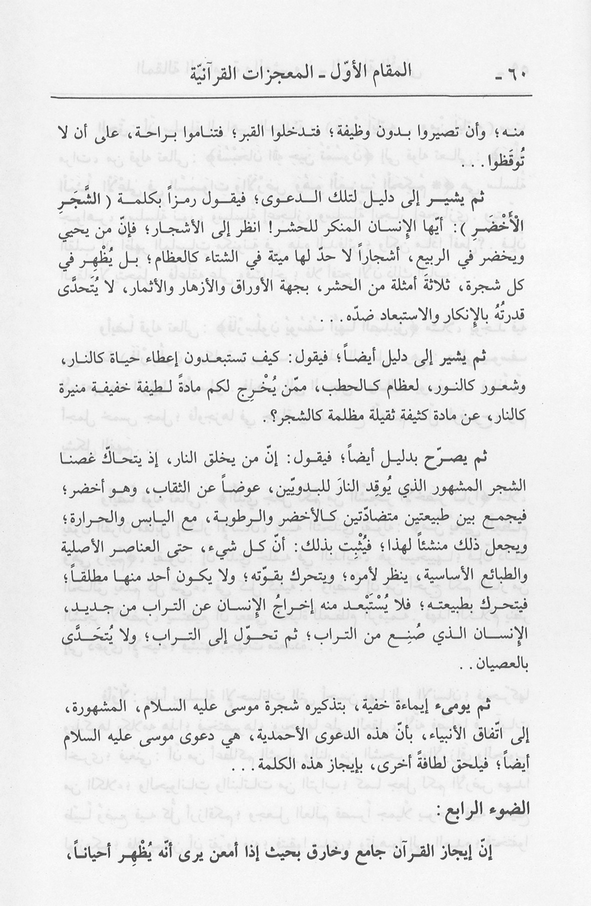 ٦٠ - المقام الأوّل - المعجزات القرآنيّة
منه؛ وأن تصيروا بدون وظيفة؛ فتدخلوا القبر؛ فتناموا براحة، على أن لا
تُوقَظوا...
ثم يشير إلى دليل لتلك الدعوى؛ فيقول رمزاً بكلمة ( الشَّجَرِ
الْأَخْضَرِ ): أيّها الإنسان المنكر للحشر! انظر إلى الأشجار؛ فإنّ من يحيي
ويخضر في الربيع، أشجاراً لا حدّ لها ميتة في الشتاء كالعظام؛ بل يُظْهِر في
كل شجرة، ثلاثةَ أمثلة من الحشر، بجهة الأوراق والأزهار والأثمار، لا يُتَحدَّى
قدرتهُ بالإنكار والاستبعاد ضدّه...
ثم يشير إلى دليل أيضاً؛ فيقول: كيف تستبعدون إعطاء حياة كالنار،
وشعور كالنور، لعظام كالحطب، ممّن يُخْرِج لكم مادةً لطيفة خفيفة منيرة
كالنار، عن مادة كثيفة ثقيلة مظلمة كالشجر؟.
ثم يصرّح بدليل أيضاً؛ فيقول: إنّ من يخلق النار، إذ يتحاكّ غصنا
الشجر المشهور الذي يُوقِد النارَ للبدويّين، عوضاً عن الثقاب، وهو أخضر؛
فيجمع بين طبيعتين متضادّتين كالأخضر والرطوبة، مع اليابس والحرارة؛
ويجعل ذلك منشئاً لهذا؛ فيُثْبِت بذلك: أنّ كل شيء، حتى العناصر الأصلية
والطبائع الأساسية، ينظر لأمره؛ ويتحرك بقوّته؛ ولا يكون أحد منها مطلقاً؛
فيتحرك بطبيعته؛ فلا يُسْتَبْعد منه إخراجُ الإنسان عن التراب من جديد،
الإنسان الذي صُنِع من التراب؛ ثم تحوّل إلى التراب؛ ولا يُتَحَدَّى
بالعصيان..
ثم يومىء إيماءة خفية، بتذكيره شجرة موسى عليه السلام، المشهورة،
إلى اتّفاق الأنبياء، بأنّ هذه الدعوى الأحمدية، هي دعوى موسى عليه السلام
أيضاً؛ فيلحق لطافةً أخرى، بإيجاز هذه الكلمة...
الضوء الرابع:
إنّ إيجاز القرآن جامع وخارق بحيث إذا أمعن يرى أنّه يُظْهِر أحياناً،